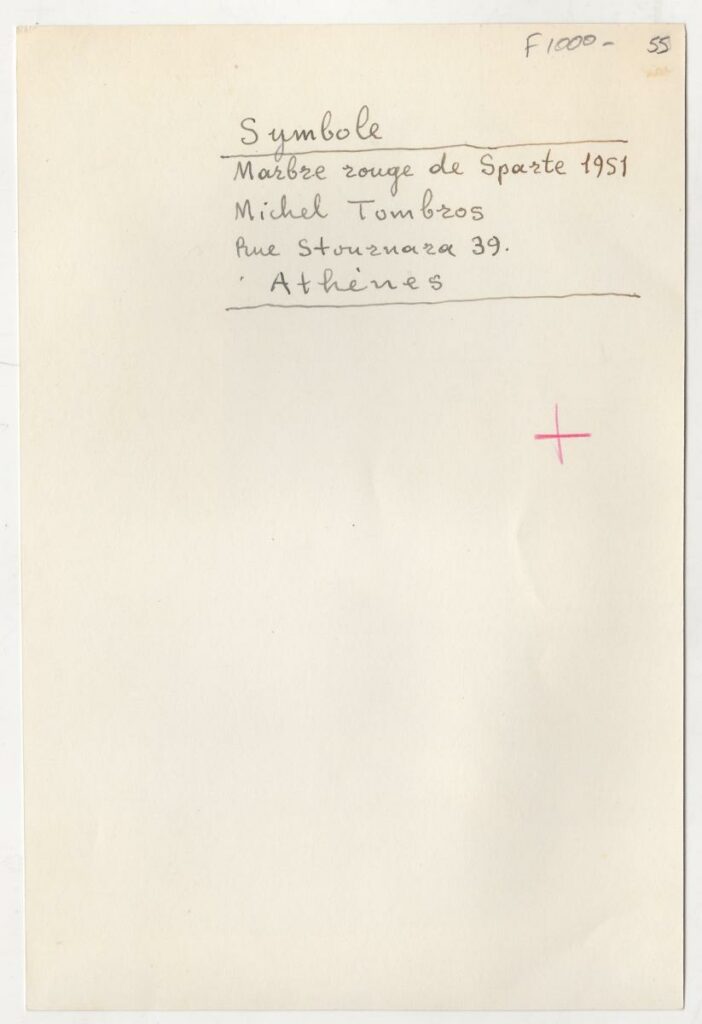 F 1000 - 55
Symbole
Marbre rouge de Sparte 1951
Michel Tombros
Rue Stournara 39.
Athènes